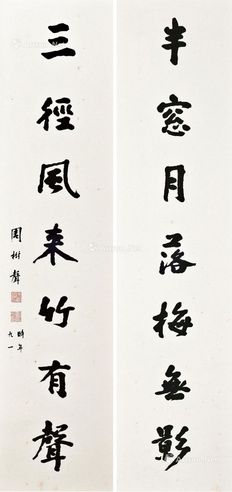 半窓月落梅無影
三徑風来竹有聲
周樹聲
時年
六一